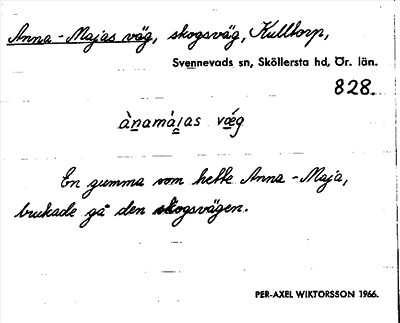 Anna-Majas väg, skogsväg, Kulltorp,
Svennevads sn, Sköllersta hd, Ör. län.
828.
ànamáɪas vǽg
En gumma som hette Anna-Maja,
brukade gå den skogsvägen.
PER-AXEL WIKTORSSON 1966.